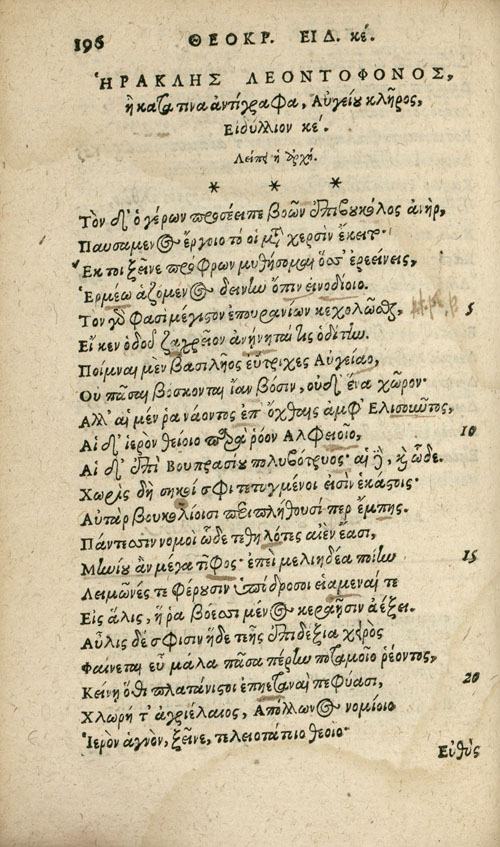 196 ΘΕΟΚΡ. ΕΙΔ. κέ.
ἩΡΑΚΛΗΣ ΛΕΟΝΤΟΦΟΝΟΣ,
ἢ κατά τινα ἀντίγραφα, Αὐγείου κλῆρος,
Εἰδύλλιον κέ.
Λείπει ἡ ἀρχή.
* * *
Τὸν δ' ὁ γέρων προσέειπε βοῶν ἐπιβουκόλος ἀνὴρ,
Παυσάμενος ἔργοιο τό οἱ μετὰ χερσὶν ἔκειτο·
Ἔκ τοι ξεῖνε πρόφρων μυθήσομαι ὅσσ' ἐρεείνεις,
Ἑρμέω ἁζόμενος δεινὴν ὄπιν εἰνοδίοιο.
Τὸν γὰρ φασὶ μέγιστον ἐπουρανίων κεχολῶσθαι, 5
Εἴ κεν ὁδοῦ ζαχρεῖον ἀνήνηταί τις ὁδίτην.
Ποίμναι μὲν βασιλῆος ἐΰτριχες Αὐγείαο,
Οὐ πᾶσαι βόσκονται ἴαν βόσιν, οὐδ' ἕνα χῶρον·
Ἀλλ' αἱ μέν ῥα νάοντος ἐπ' ὄχθαις ἀμφ' Ἐλισοῦντος,
Αἱ δ' ἱερὸν θείοιο παρὰ ῥόον Ἀλφειοῖο, 10
Αἱ δ' ἐπὶ Βουπρασίου πολυβότρυος· αἱ δὲ, καὶ ὧδε.
Χωρὶς δὴ σηκοί σφι τετυγμένοι εἰσὶν ἑκάσταις·
Αὐτὰρ βουκολίοισι περιπλήθουσί περ ἔμπης.
Πάντεσσιν νομοὶ ὧδε τεθηλότες αἰὲν ἔασι,
Μηνίου ἂν μέγα τῖφος· ἐπεὶ μελιηδέα ποίην 15
Λειμῶνές τε φέρουσιν ὑπόδροσοι εἱαμεναί τε
Εἰς ἅλις, ἥ ῥα βόεσσι μένος κεραῆσιν ἀέξει.
Αὖλις δέ σφισιν ἥδε τεῆς ἐπιδέξια χειρὸς
Φαίνεται εὖ μάλα πᾶσα πέρην ποταμοῖο ῥέοντος,
Κείνῃ ὅθι πλατάνιστοι ἐπηεταναὶ πεφύασι, 20
Χλωρή τ' ἀγριέλαιος, Ἀπόλλωνος νομίοιο
Ἱερὸν ἁγνὸν, ξεῖνε, τελειοτάτοιο θεοῖο·
Εὐθὺς